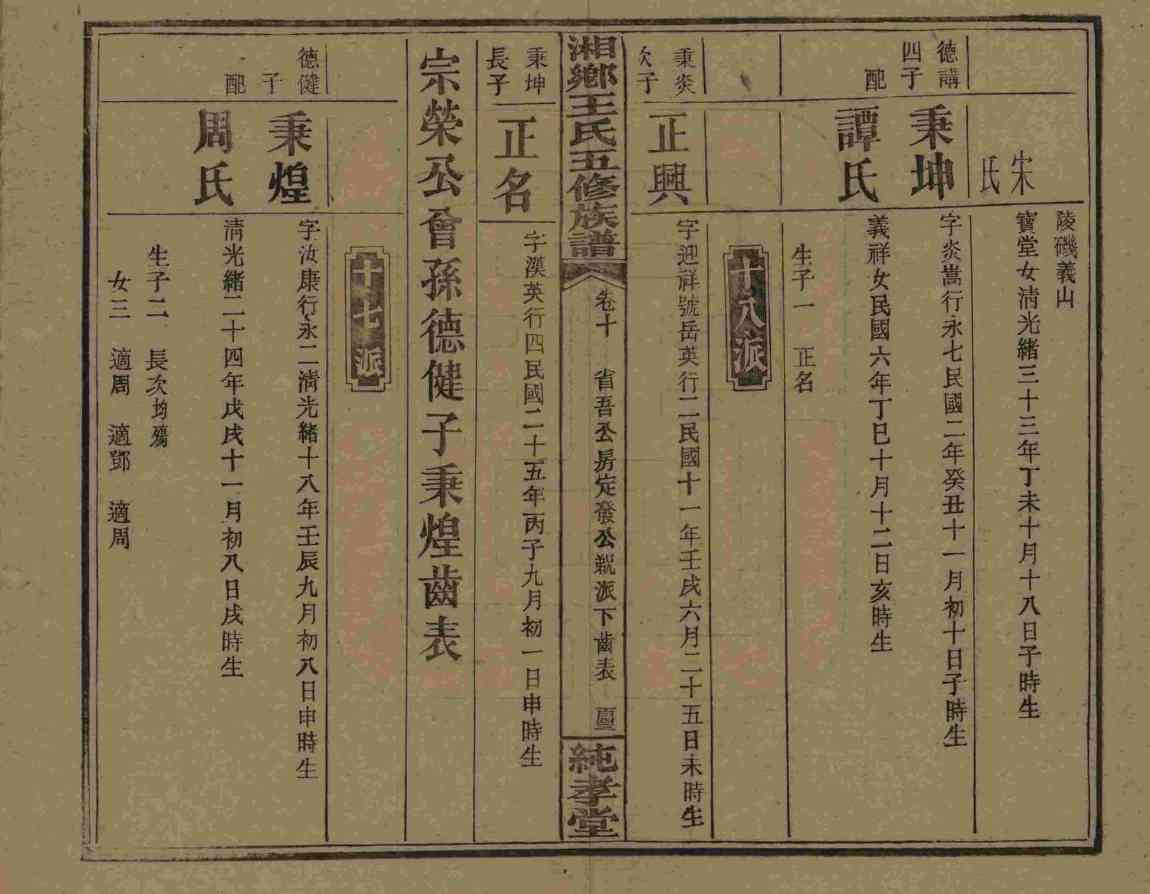 陵磯義山
宋氏
寶堂女淸光緒三十三年丁未十月十八日子時生
德講四子
秉坤
字炎嵩行永七民國二年癸丑十一月初十日子時生
配
譚氏
義祥女民國六年丁巳十月十二日亥時生
生子一 正名
十八派
秉炎次子
正興
字迎祥號岳英行二民國十一年壬戌六月二十五日未時生
湘鄉王氏五修族譜
卷十 省吾公房定發公派下齒表
純孝堂
秉坤長子
正名
字漢英行四民國二十五年丙子九月初一日申時生
宗榮公會孫德健子秉煌齒表
十七派
德健子
秉煌
字汝康行永二淸光緒十八年壬辰九月初八日申時生
配
周氏
淸光緒二十四年戊戌十一月初八日戌時生
生子二 長次均殤
女三 適周 適鄧 適周